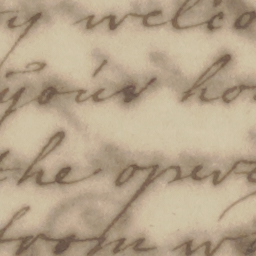 ty welco
your ho
the opera
from wa